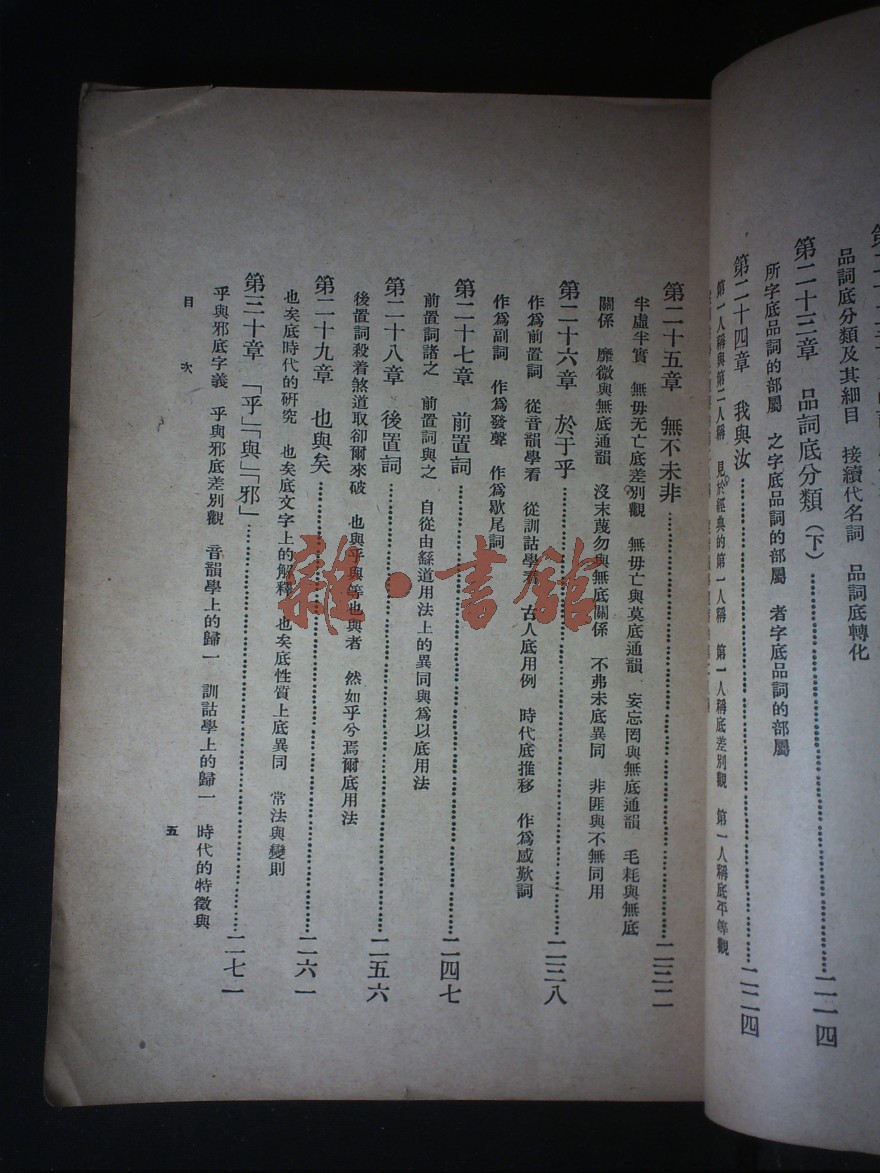 品詞底分類及其細目　接續代名詞　品詞底轉化
第二十三章　品詞底分類（下）……二一四
所字底品詞的部屬　之字底品詞的部屬　者字底品詞的部屬
第二十四章　我與汝……二二四
第一人稱與第二人稱　見於經典的第一人稱　第一人稱底差別觀　第一人稱底平等觀
第二十五章　無不未非……二三二
半虛半實　無毋无亡底差別觀　無毋亡與莫底通韻　妄忘罔與無底通韻　毛耗與無底
關係　靡微與無底通韻　沒末蔑勿與無底關係　不弗未底異同　非匪與不無同用
第二十六章　於于乎……二三八
作爲前置詞　從音韻學看　從訓詁學看　古人底用例　時代底推移　作爲感歎詞
作爲副詞　作爲發聲　作爲歇尾詞
第二十七章　前置詞……二四七
前置詞諸之　前置詞與之　自從由繇道用法上的異同與爲以底用法
第二十八章　後置詞……二五六
後置詞殺着煞道取卻爾來破　也與乎與等也與者　然如乎兮焉爾底用法
第二十九章　也與矣……二六一
也矣底時代的硏究　也矣底文字上的解釋　也矣底性質上底異同　常法與變則
第三十章　「乎」「與」「邪」……二七一
乎與邪底字義　乎與邪底差別觀　音韻學上的歸一　訓詁學上的歸一　時代的特徵與
目次　五
雜·書館